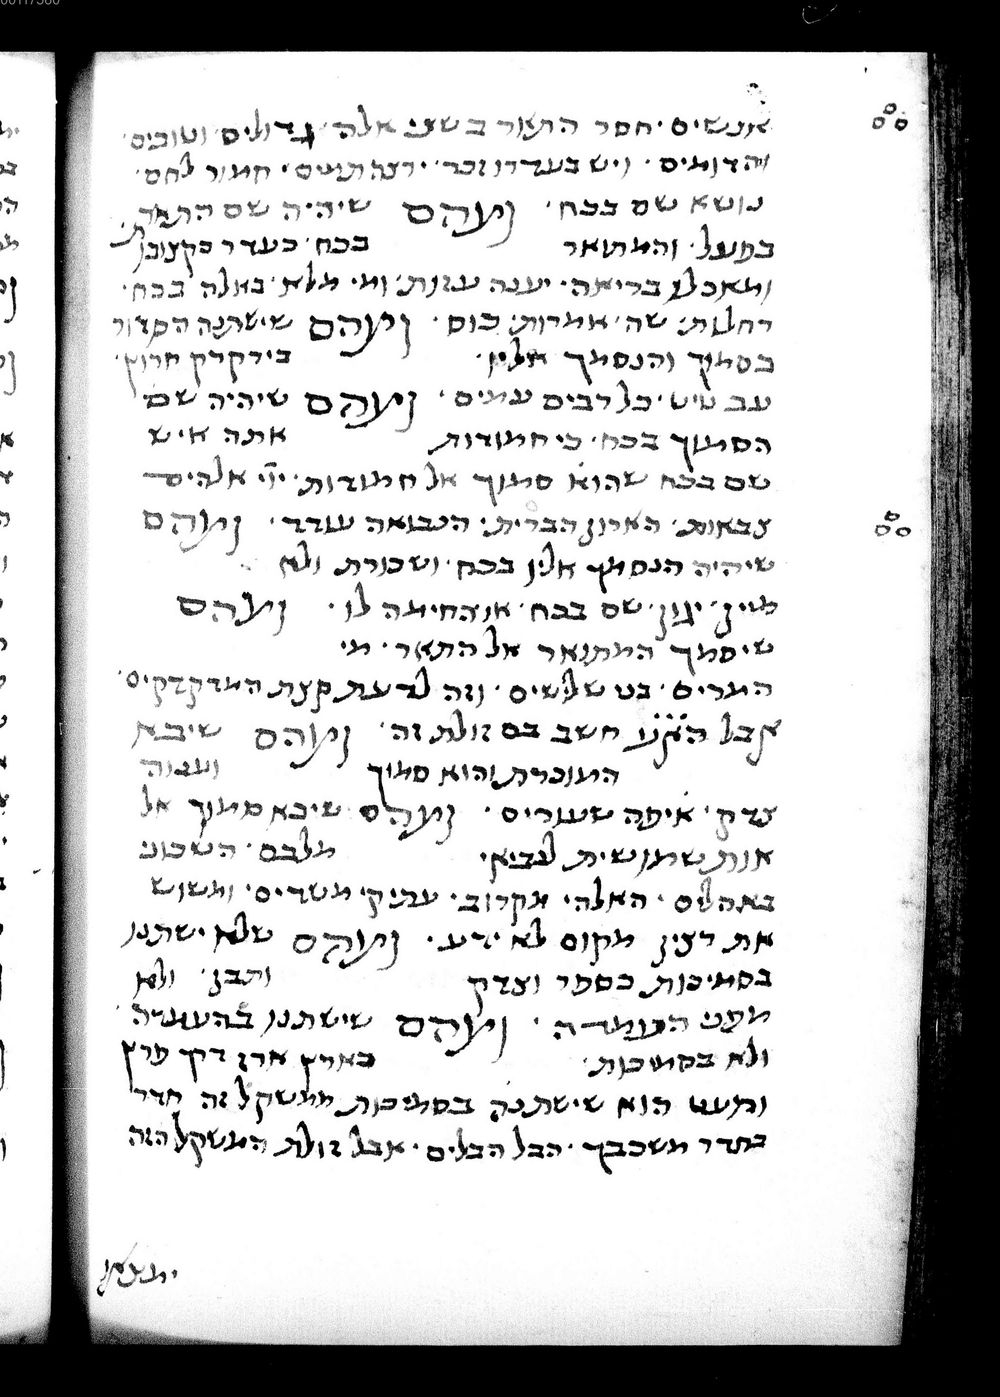 אנשים חסר התאר בשני אלה גדולים וטובים
והדומים ויש בעדרו זכר רצה תמים חמור לחם
נושא שם בכח ומהם שיהיה שם התמיד
בפועל והמתואר בכח כעדר
ומאכלו בריאה יענה עזות ומי מלא באלה בכח
רחלות שה אמרות כוס ומהם שישתנה הסדור
בסמוך והנסמך אליו בירקרק חרוץ
עב טיט כל רבים עמים ומהם שיהיה שם
הסמוך בכח כי חמודות אתה איש
שם בכח שהוא סמוך אל חמודות ייי אלהים
צבאות הארון הברית הנבואה עודד ומהם
שיהיה הנסמך אליו בכח ושכורת ולא
מיין יגון שם בכח או החימה לו ומהם
שיסמך המתואר אל התאר מי
המרים בט שלישים וזה לדעת קצת המדקדקים
אבל חשב בם זולת זה ומהם שיבא
המוכרת והוא סמוך וענוה
צדק איפה שעורים ומהם שיבא סמוך אל
אות שמושית לנביאי מלבם השכוני
באהלים האלה מקרוב עתיקי משדים ומשוש
את רצין מקום לא ידע ומהם שלא ישתנו
בסמיכות כספר וצדק ותבן ולא
מפני העמדה ומהם שישתנו בהעמדה
ולא בסמיכות כארץ ארז דרך פרץ
ומעט הוא שישתנה בסמיכות ממשקל זה חדר
בחדר משכבך הבל הבלים אבל זולת המשקל הזה
ימצאו